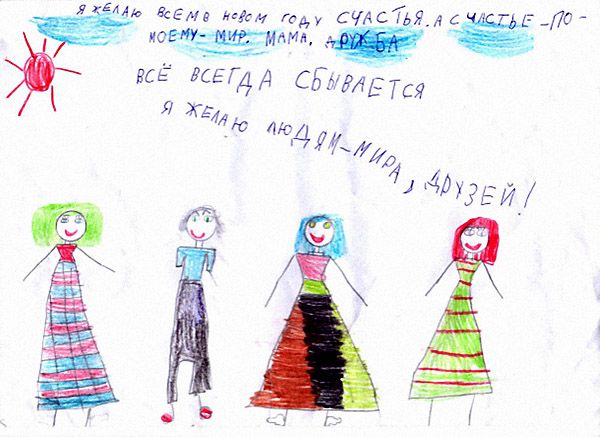 Я ЖЕЛАЮ ВСЕМ В НОВОМ ГОДУ СЧАСТЬЯ. А СЧАСТЬЕ-ПО-
МОЕМУ- МИР. МАМА, ДРУЖБА
ВСЁ ВСЕГДА СБЫВАЕТСЯ
Я ЖЕЛАЮ ЛЮДЯМ-МИРА, ДРУЗЕЙ!